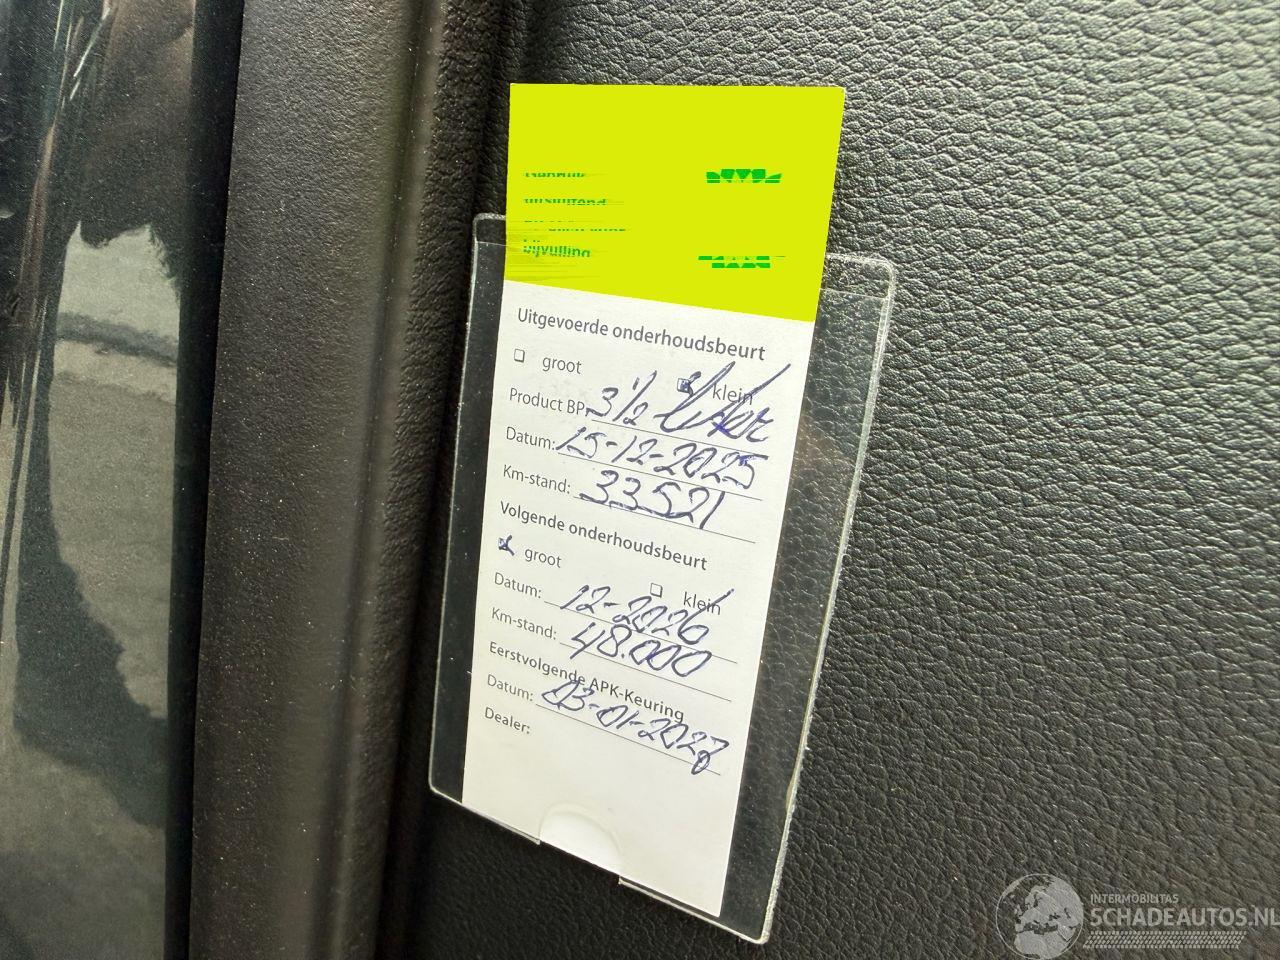 uitsluitend
bijvulling
Uitgevoerde onderhoudsbeurt
groot klein
Product BP: 3½ liter
Datum: 15-12-2025
Km-stand: 33521
Volgende onderhoudsbeurt
groot klein
Datum: 12-2026
Km-stand: 48.000
Eerstvolgende APK-Keuring
Datum: 03-01-2028
Dealer:
INTERMOBILITAS
SCHADEAUTOS.NL